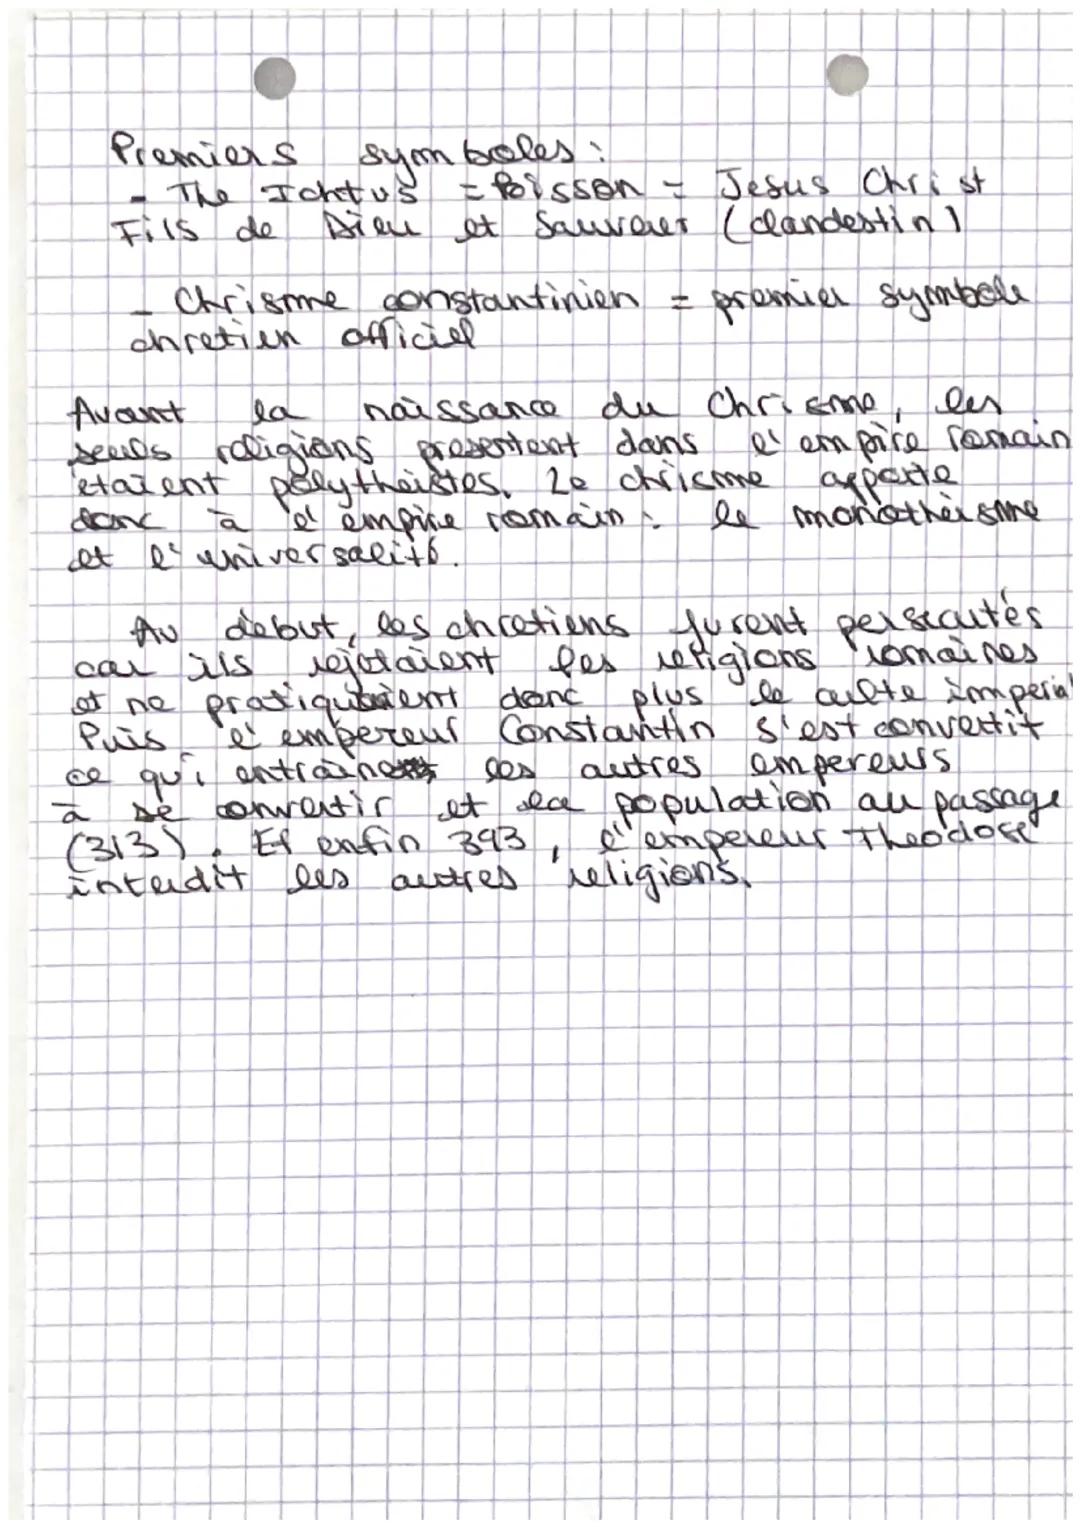 Premiers symboles :
- The Ichtus = Poisson = Jesus Christ
Fils de Dieu et Sauveur (clandestin)
- Chrisme constantinien = premier symbole
chretien officiel
Avant la naissance du Chrisme, les
seules religions presentent dans l'empire romain
étaient polythéistes. Le chrisme apporte
donc à l'empire romain : le monothéisme
et l'universalité.
Au début, les chretiens furent persécutés
car ils rejetaient les religions romaines
et ne pratiquaient donc plus le culte imperial
Puis l'empereur Constantin s'est convertit
ce qui entraine les autres empereurs
à se convertir et la population au passage
(313). Et enfin 393, l'empereur Theodose
interdit les autres religions.